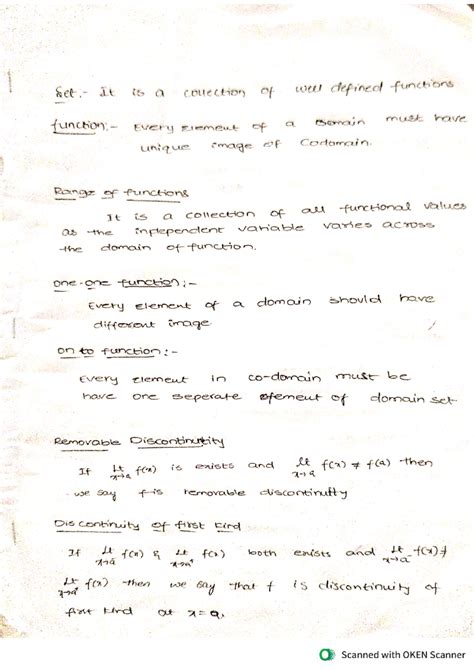 Set :- It is a collection of well defined functions
function :- Every element of a Domain must have
unique image of Codomain.
Range of functions
It is a collection of all functional values
as the independent variable varies across
the domain of function.
one-one function :-
Every element of a domain should have
different image
on to function :-
Every element in co-domain must be
have one seperate efement of domain set
Removable Discontinutity
If Lt x→a f(x) is exists and Lt x→a f(x) ≠ f(a) then
we say f is removable discontinuity
Discontinuity of first kind
If Lt x→a⁻ f(x) & Lt x→a⁺ f(x) both exists and Lt x→a⁻ f(x) ≠
Lt x→a⁺ f(x) then we say that f is discontinuity of
first kind at x=a.
Scanned with OKEN Scanner